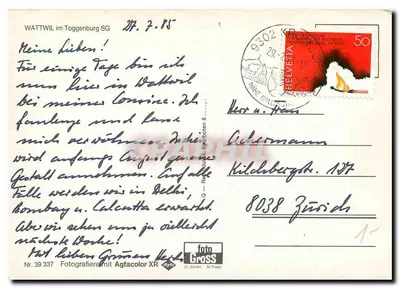 WATTWIL im Toggenburg SG
27. 7. 85
Meine Lieben!
Für einige Tage bin ich
nun hier in Wattwil
bei meiner Cousine. Ich
faulenze und lasse
mich verwöhnen. Indien
wird anfangs August seine
Gestalt annehmen. Auf alle
Fälle werden wir in Delhi,
Bombay u. Calcutta erwartet.
Aber wir sehen uns ja vielleicht
nächste Woche!
Mit lieben Grüssen
Nr. 39 337 Fotografieren mit Agfacolor XR
foto
GROSS
St. Gallen
9302
HELVETIA
50
Herr u. Frau
Ackermann
Kilchbergstr. 137
8038 Zürich
1-